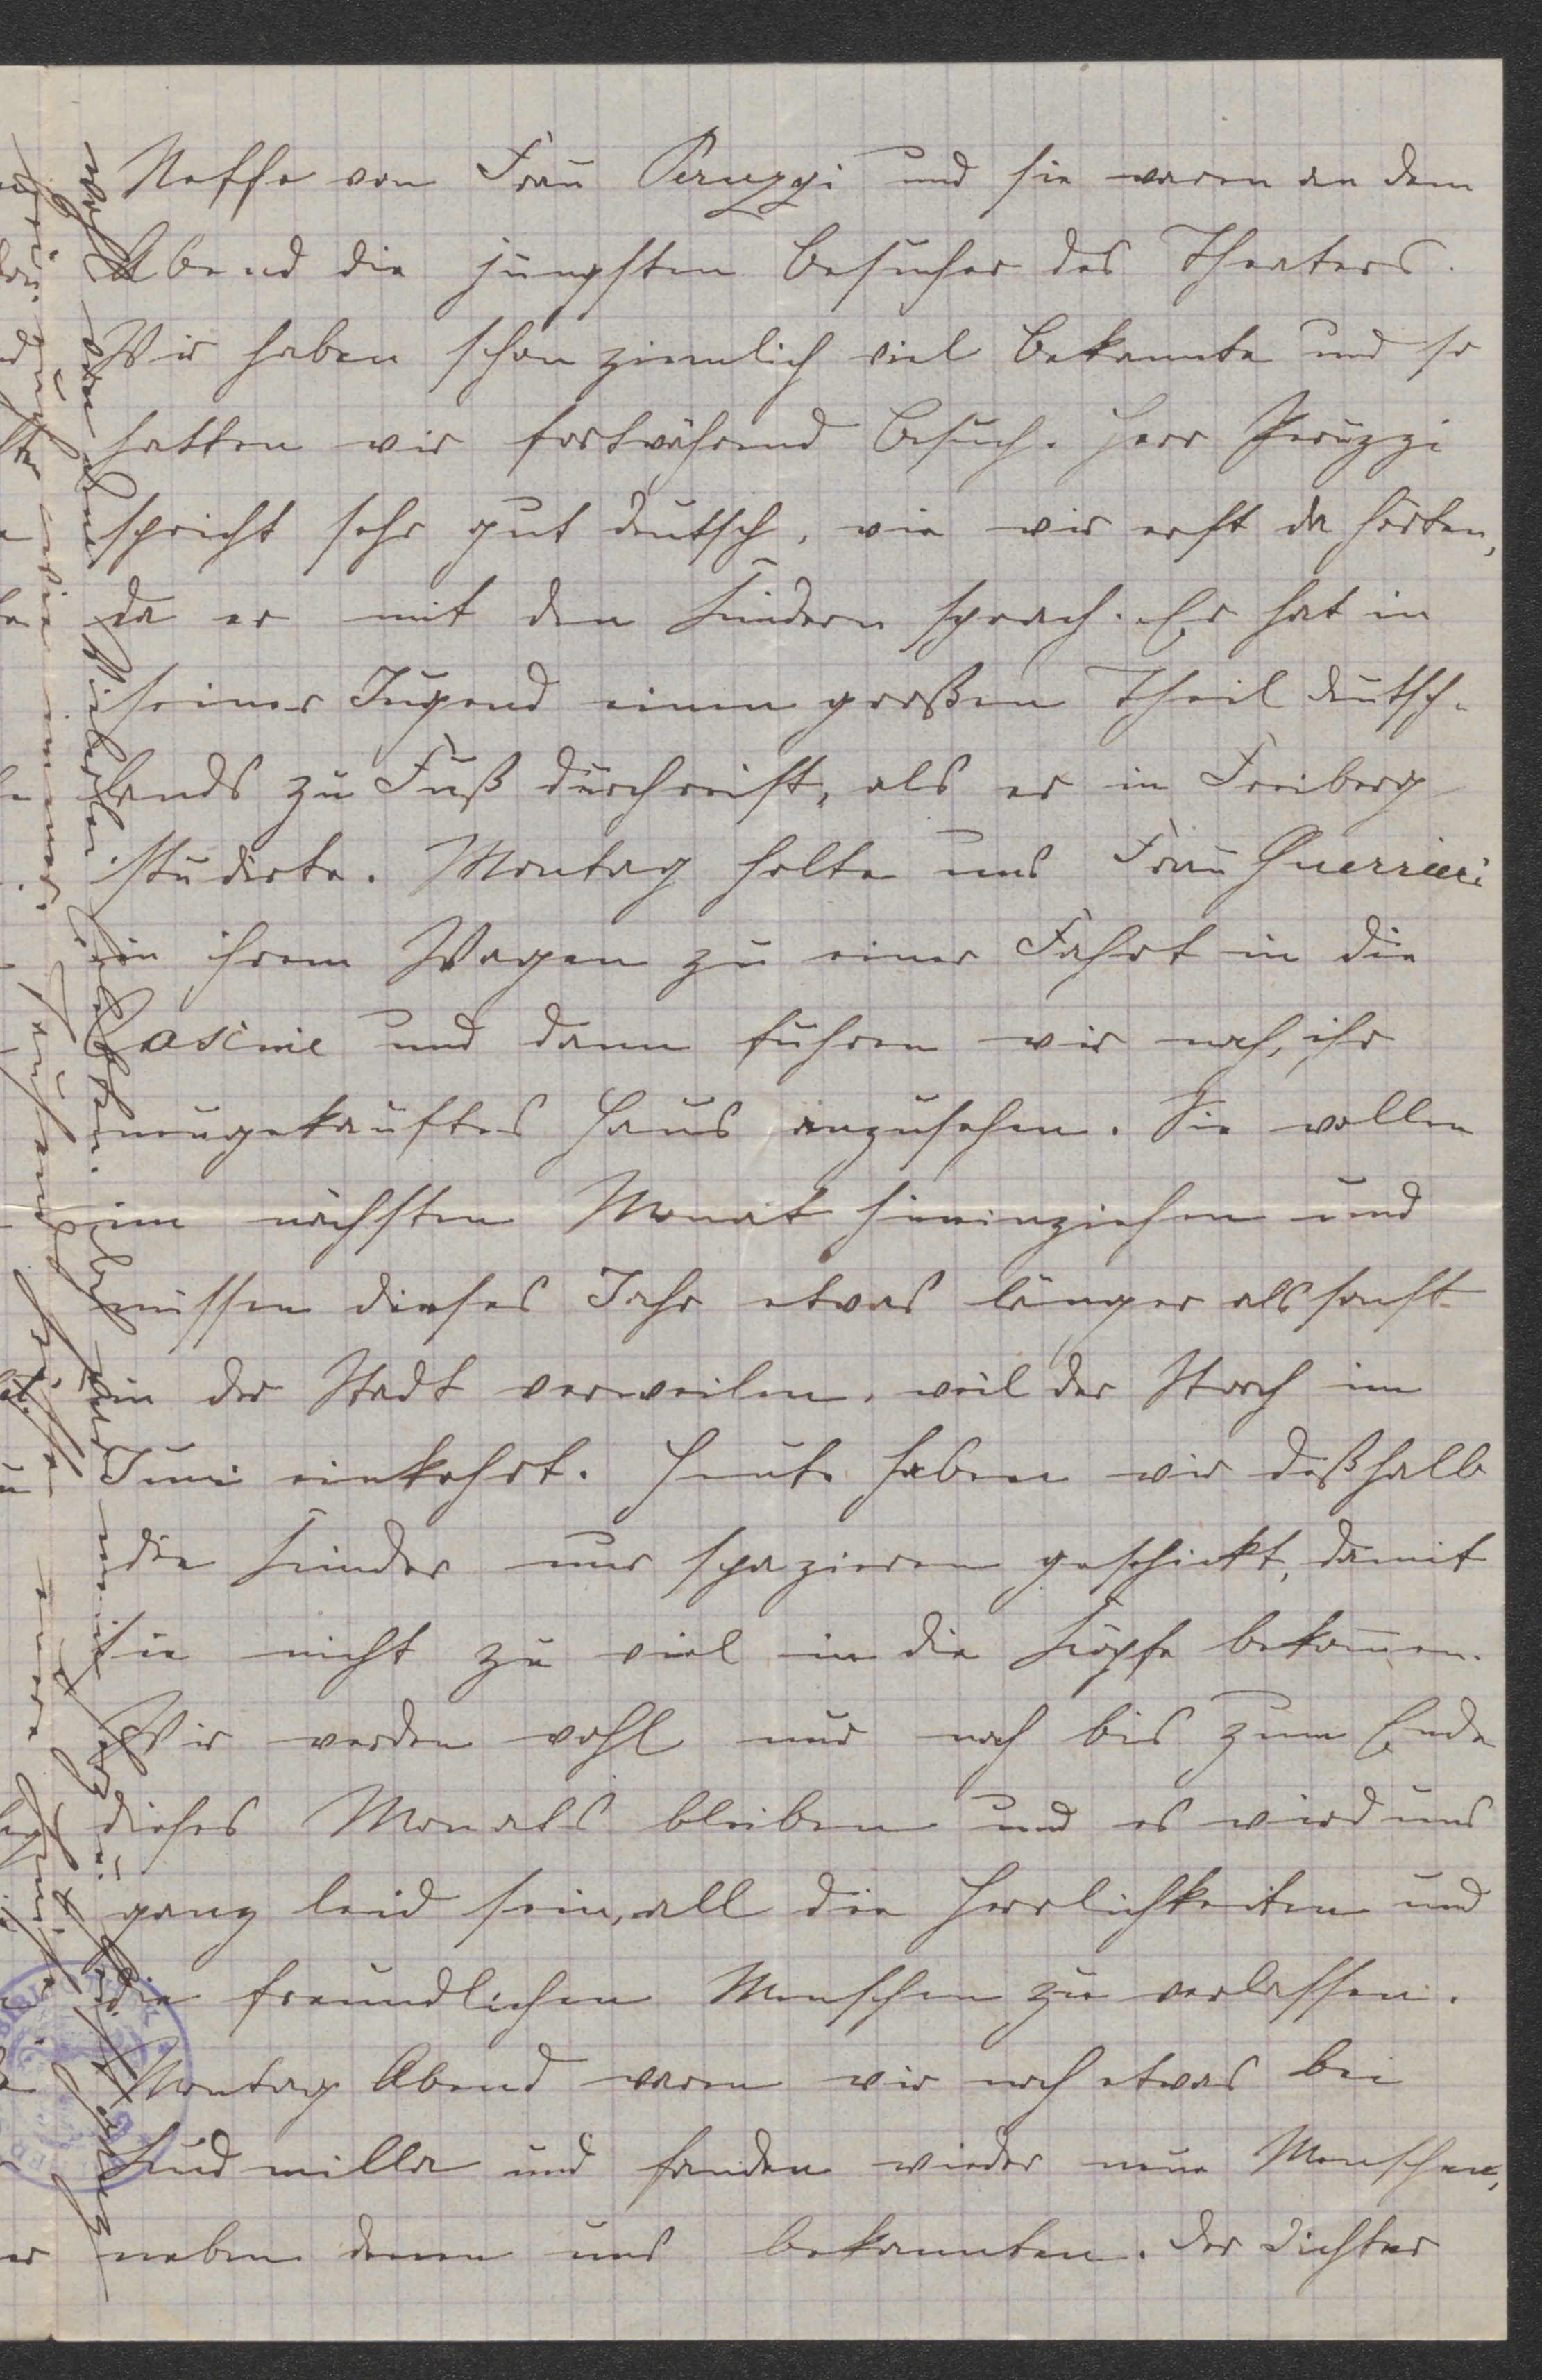 Neffe von Frau Peruzzi und sie waren an dem
Abend die jüngsten Besucher des Theaters.
Wir haben schon ziemlich viel Bekannte und so
hatten wir fortwährend Besuch. Herr Peruzzi
spricht sehr gut deutsch, wie wir erst da hörten,
da er mit den Kindern sprach. Er hat in
seiner Jugend einen großen Theil Deutsch-
lands zu Fuß durchreist, als er in Freiberg
studirte. Montag holte uns Frau Guerrieri
in ihrem Wagen zu einer Fahrt in die
Cascine und dann fuhren wir noch, ihr
neugekauftes Haus anzusehen. Sie wollen
im nächsten Monat hineinziehen und
müssen dieses Jahr etwas länger als sonst
in der Stadt verweilen, weil der Storch im
Juni einkehrt. Heute haben wir deßhalb
die Kinder nur spazieren geschickt, damit
sie nicht zu viel in die Köpfe bekommen.
Wir werden wohl nur noch bis zum Ende
dieses Monats bleiben und es wird uns
ganz leid sein, all die Herrlichkeiten und
die freundlichen Menschen zu verlassen.
Montag Abend waren wir noch etwas bei
Ludmilla und fanden wieder neue Menschen,
neben denen uns bekannten. Der Dichter